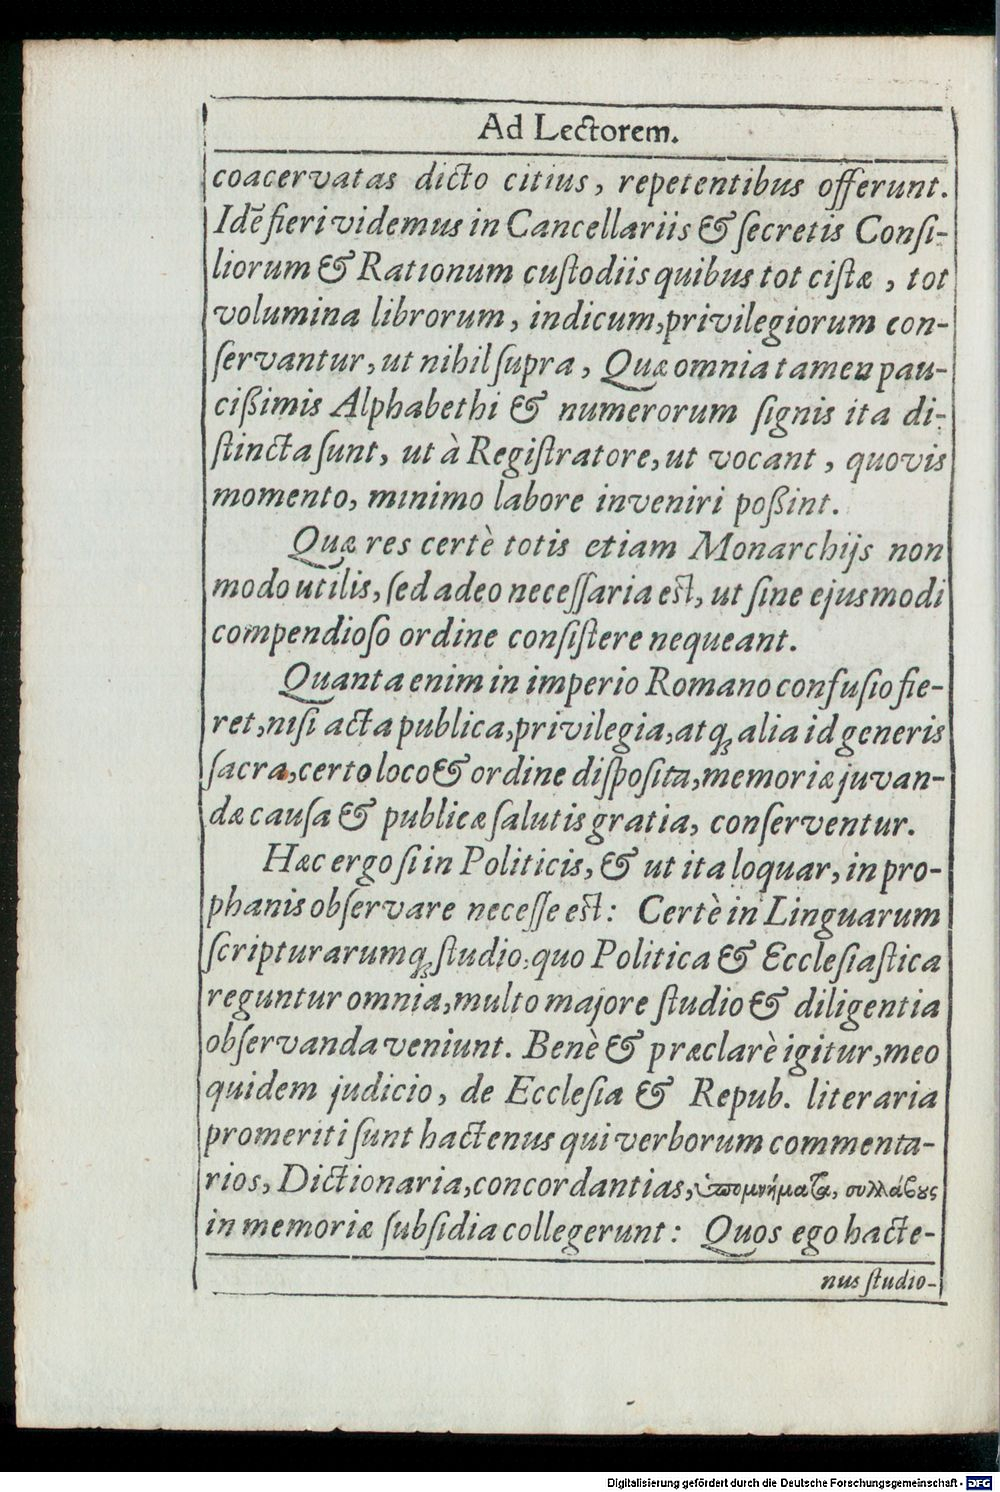 Ad Lectorem.
coacervatas dicto citius, repetentibus offerunt.
Idē fieri videmus in Cancellariis & ſecretis Conſi-
liorum & Rationum cuſtodiis quibus tot ciſtæ, tot
volumina librorum, indicum, privilegiorum con-
ſervantur, ut nihil ſupra, Quæ omnia tamen pau-
cißimis Alphabethi & numerorum ſignis ita di-
ſtincta ſunt, ut à Regiſtratore, ut vocant, quovis
momento, minimo labore inveniri poßint.
Quæ res certè totis etiam Monarchijs non
modo utilis, ſed adeo neceſſaria eſt, ut ſine ejusmodi
compendioſo ordine conſiſtere nequeant.
Quanta enim in imperio Romano confuſio fie-
ret, niſi acta publica, privilegia, atq; alia id generis
ſacra, certo loco & ordine diſpoſita, memoriæ juvan-
dæ cauſa & publicæ ſalutis gratia, conſerventur.
Hæc ergo ſi in Politicis, & ut ita loquar, in pro-
phanis obſervare neceſſe eſt: Certè in Linguarum
ſcripturarumq; ſtudio, quo Politica & Eccleſiaſtica
reguntur omnia, multo majore ſtudio & diligentia
obſervanda veniunt. Benè & præclarè igitur, meo
quidem judicio, de Eccleſia & Repub. literaria
promeriti ſunt hactenus qui verborum commenta-
rios, Dictionaria, concordantias, ὑπομνήματα, συλλάβους
in memoriæ ſubſidia collegerunt: Quos ego hacte-
nus ſtudio-
Digitalisierung gefördert durch die Deutsche Forschungsgemeinschaft - DFG